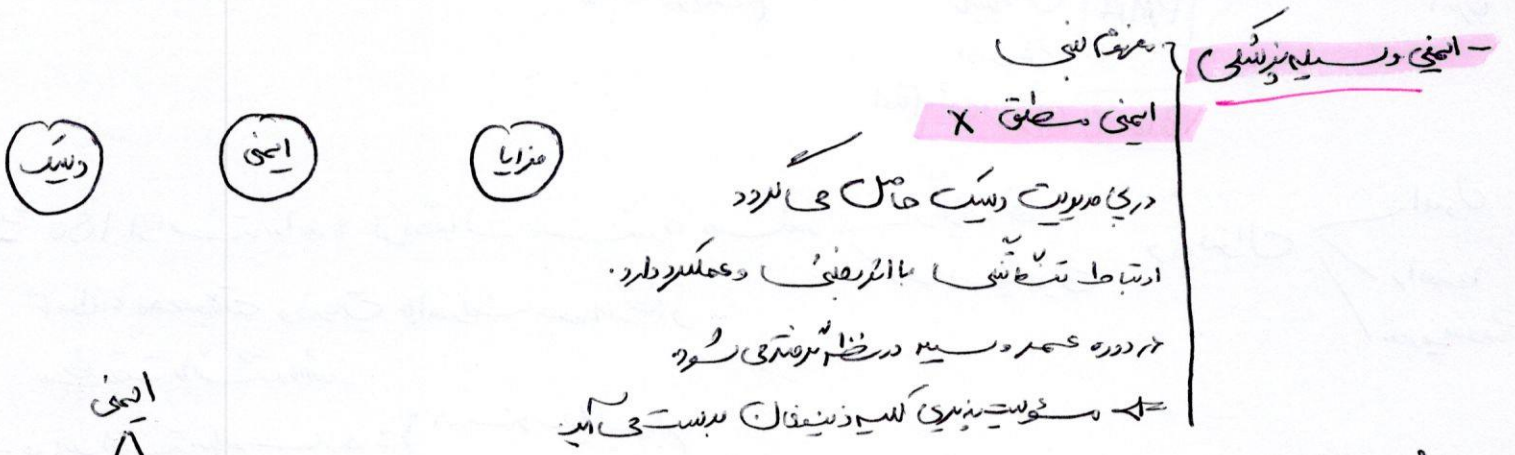 - ایمنی وسیله پزشکی
مفهوم نسبی
ایمنی مطلق X
مزایا ایمنی ریسک
در پی مدیریت ریسک حاصل می‌گردد
ارتباط تنگاتنگی با اثربخشی و عملکرد دارد.
در دوره عمر وسیله در نظر گرفته می‌شود.
مسئولیت پذیری کلیه ذینفعان بدست می‌آید.
ایمنی